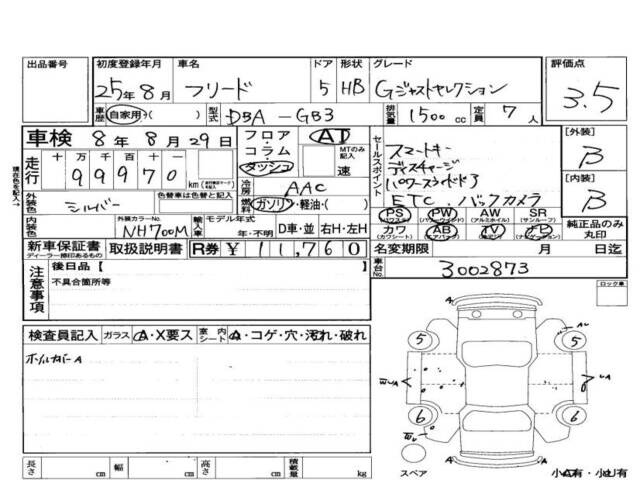 出品番号 初度登録年月 車名 ドア 形状 グレード 評価点
25年8月 フリード 5 HB Gジャストセレクション 3.5
車歴 自家用・( ) 型式 DBA-GB3 排気量 1500cc 定員 7人
車検 8年8月29日 フロア・コラム・ダッシュ AT MTのみ記入 速
走行 十 万 千 百 十 一
99970 km
冷房 AAC
外装色 シルバー 色替車は色替と記入 燃料 ガソリン・軽油・( )
内装色 外装カラーNo. NH700M 輸入車 モデル年式 年・不明 D車・並 右H・左H
セールスポイント
スマートキー
ディスチャージ
パワースライドドア
ETC.バックカメラ
[外装] B
[内装] B
PS PW AW SR
(パワステ) (パワーウィンドウ) (アルミホイル) (サンルーフ)
カワ AB TV ナビ
(カワシート) (エアバッグ) (テレビ) (ナビゲーション)
純正品のみ丸印
新車保証書 取扱説明書 R券 ¥11,760
ディーラー捺印あるもの
名変期限 月 日迄
車台No. 3002873
注意事項 後日品【 】
不具合箇所等
ロック車
検査員記入 ガラス A・X要ス 室内シート A・コゲ・穴・汚れ・破れ
ホイルカバーA
A
AU
5 5
W A
A
6 6
W
A
スペア 小A有・小U有
長さ cm 幅 cm 高さ cm 積載量 kg
現在色を記入→